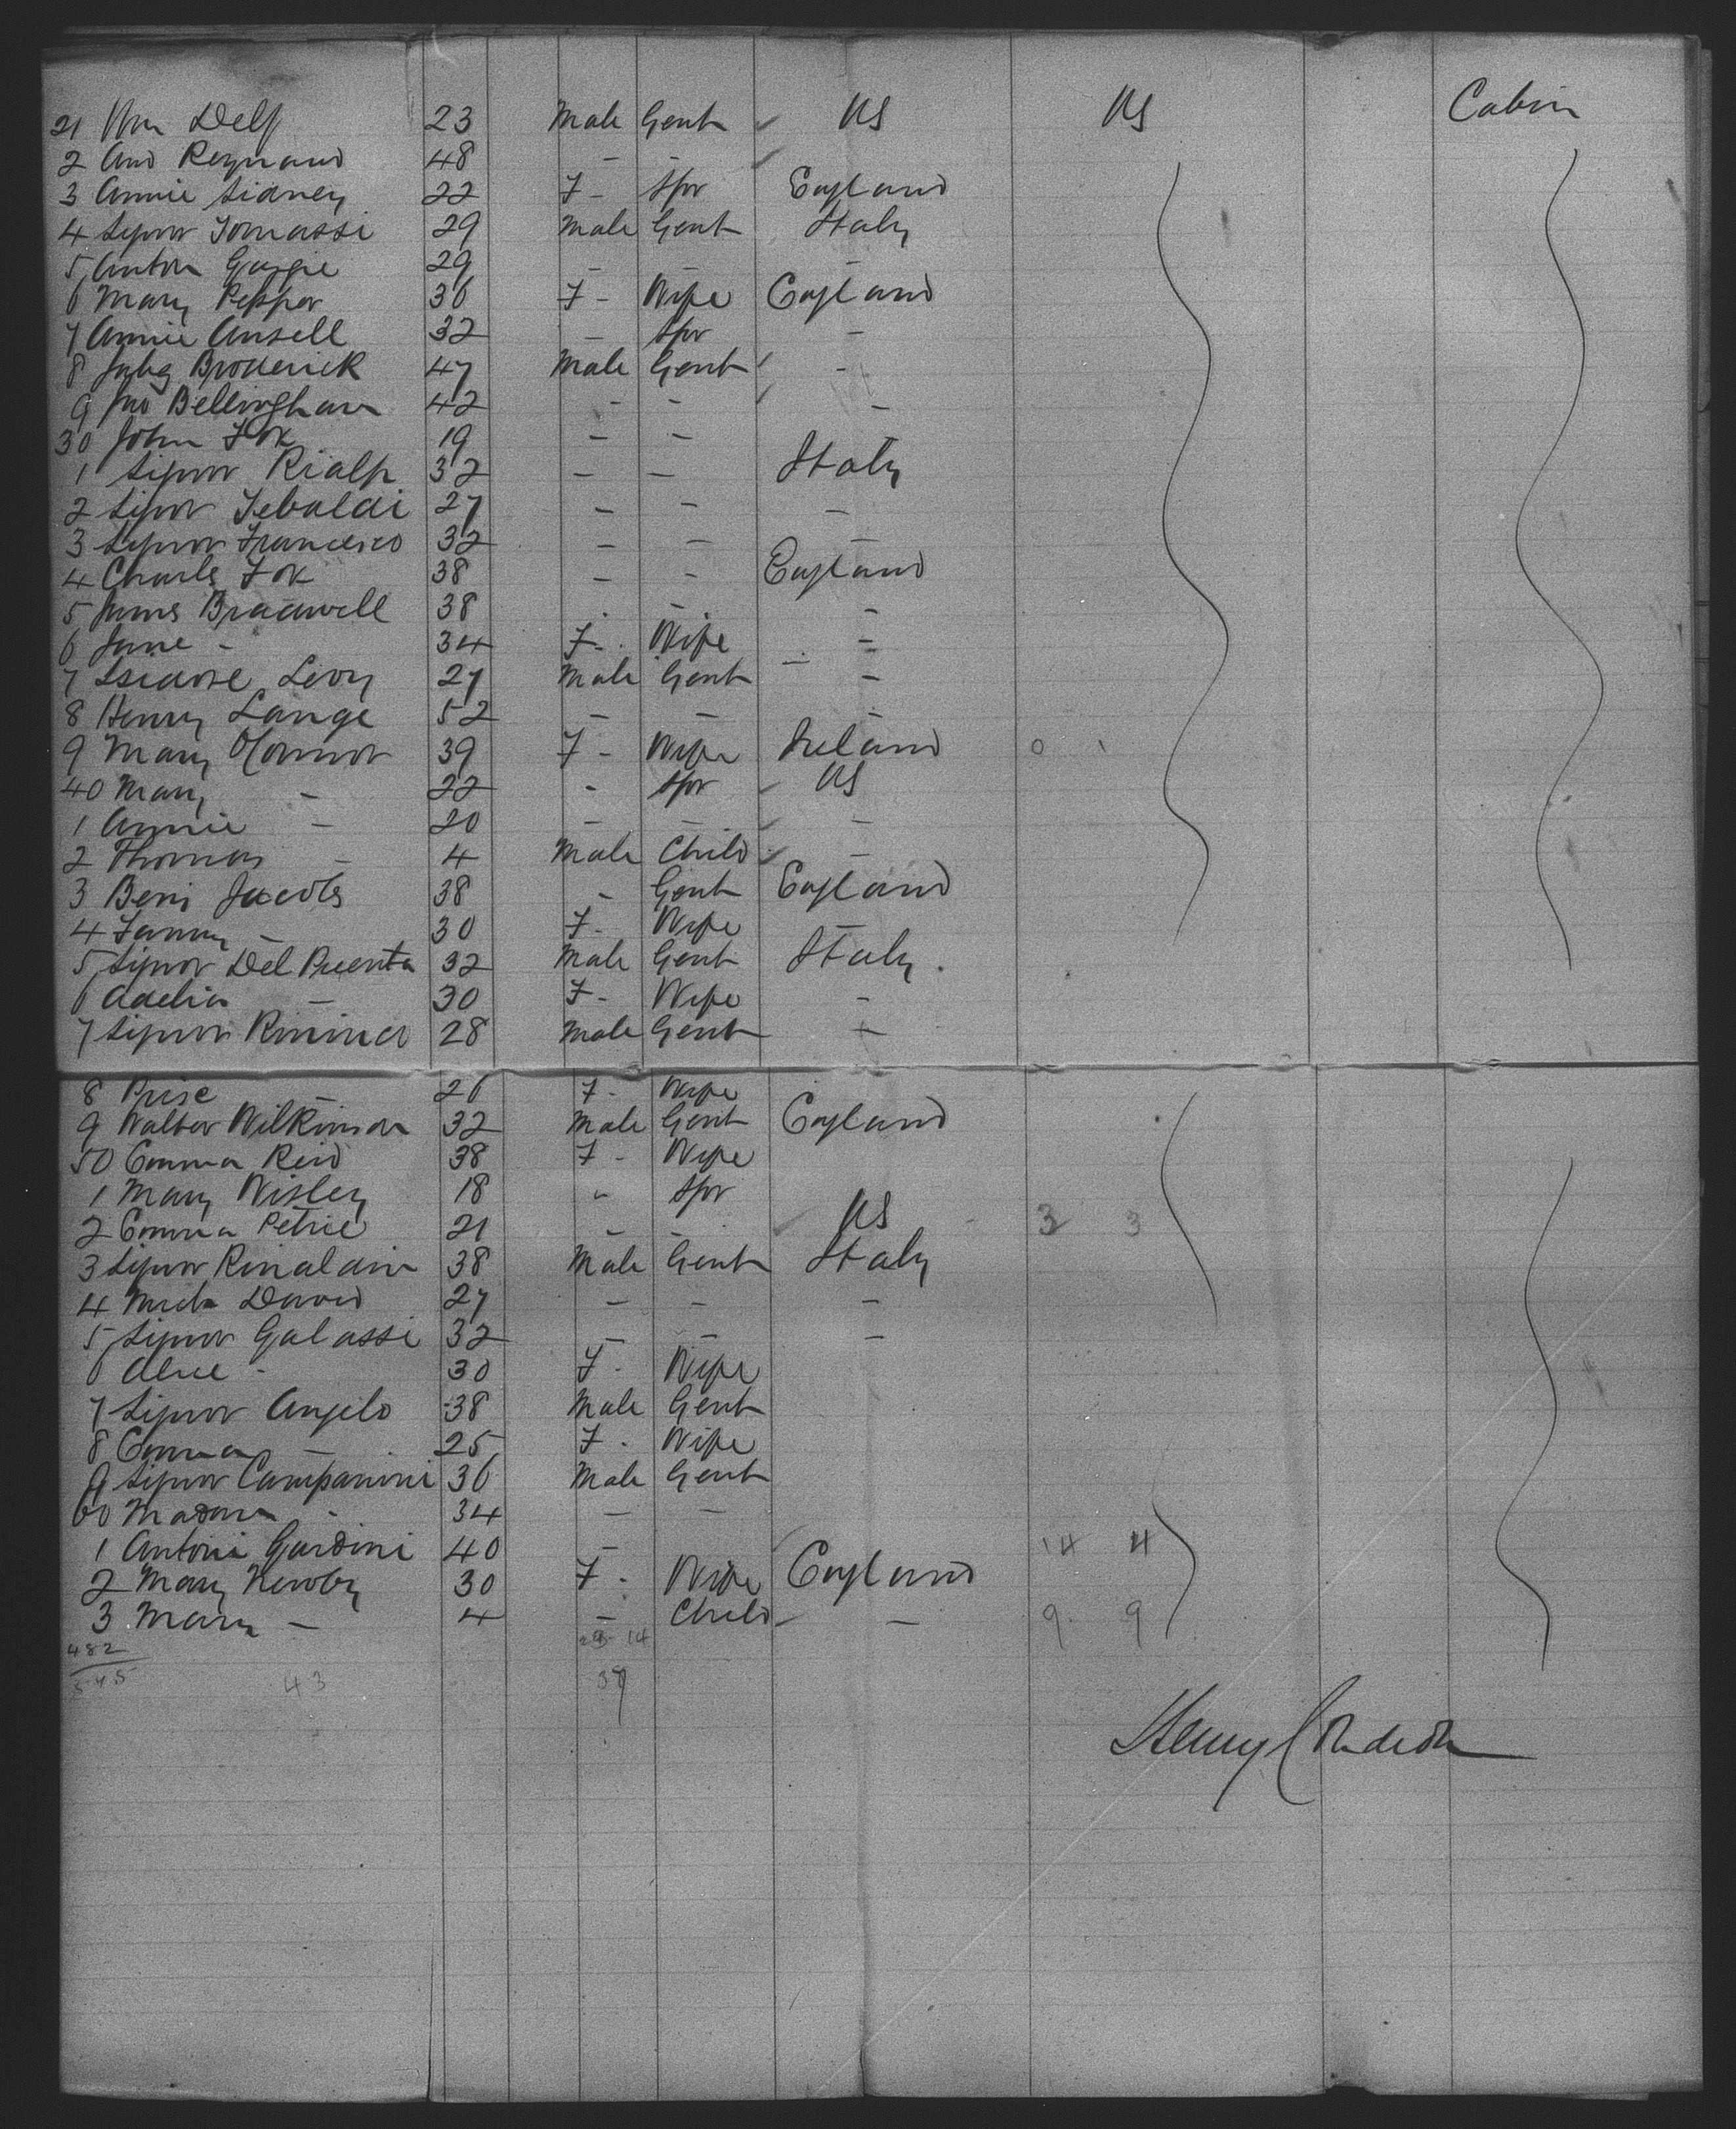 21 Wm Delf 23 Male Gent US US Cabin
2 And Reynaud 48 - -
3 Annie Sidney 22 F- Spr England
4 Signor Tomassi 29 Male Gent Italy
5 Anton 29 - - -
6 Mary Pepper 36 F- Wife England
7 Annie Ansell 32 - Spr -
8 Broderick 47 Male Gent -
9 Jno Bellingham 42 - - -
30 John Fox 19 - - -
1 Signor Rialp 32 - - Italy
2 Signor Tebaldi 27 - - -
3 Signor Francesco 32 - - -
4 Charles Fox 38 - - England
5 James Bradwell 38 - - -
6 Jane - 34 F- Wife -
7 Isidore Levy 27 Male Gent -
8 Henry Lange 52 - - -
9 Mary O'Connor 39 F- Wife Ireland 0 1
40 Mary - 22 - Spr US
1 Annie - 20 - - -
2 Thomas - 4 Male Child -
3 Benj Jacobs 38 - Gent England
4 Fanny - 30 F- Wife -
5 Signor Del Puenta 32 Male Gent Italy
6 Adelia - 30 F- Wife -
7 Signor 28 Male Gent -
8 - 26 F- Wife
9 Walter Wilkinson 32 Male Gent England
50 Emma Reid 38 F- Wife
1 Mary Wisley 18 - Spr
2 Emma Petrie 21 - - US 3 3
3 Signor Rinaldini 38 Male Gent Italy
4 David 27 - - -
5 Signor Galassi 32 - - -
6 Alice - 30 F- Wife
7 Signor Angelo 38 Male Gent
8 Emma - 25 F- Wife
9 Signor Campanini 36 Male Gent
60 Madam - 34 - -
1 Antoni Gardini 40 - 14 4
2 Mary Newby 30 F- Wife England
3 Mary - 4 - Child - 9 9
482 14
545 43 39
Henry